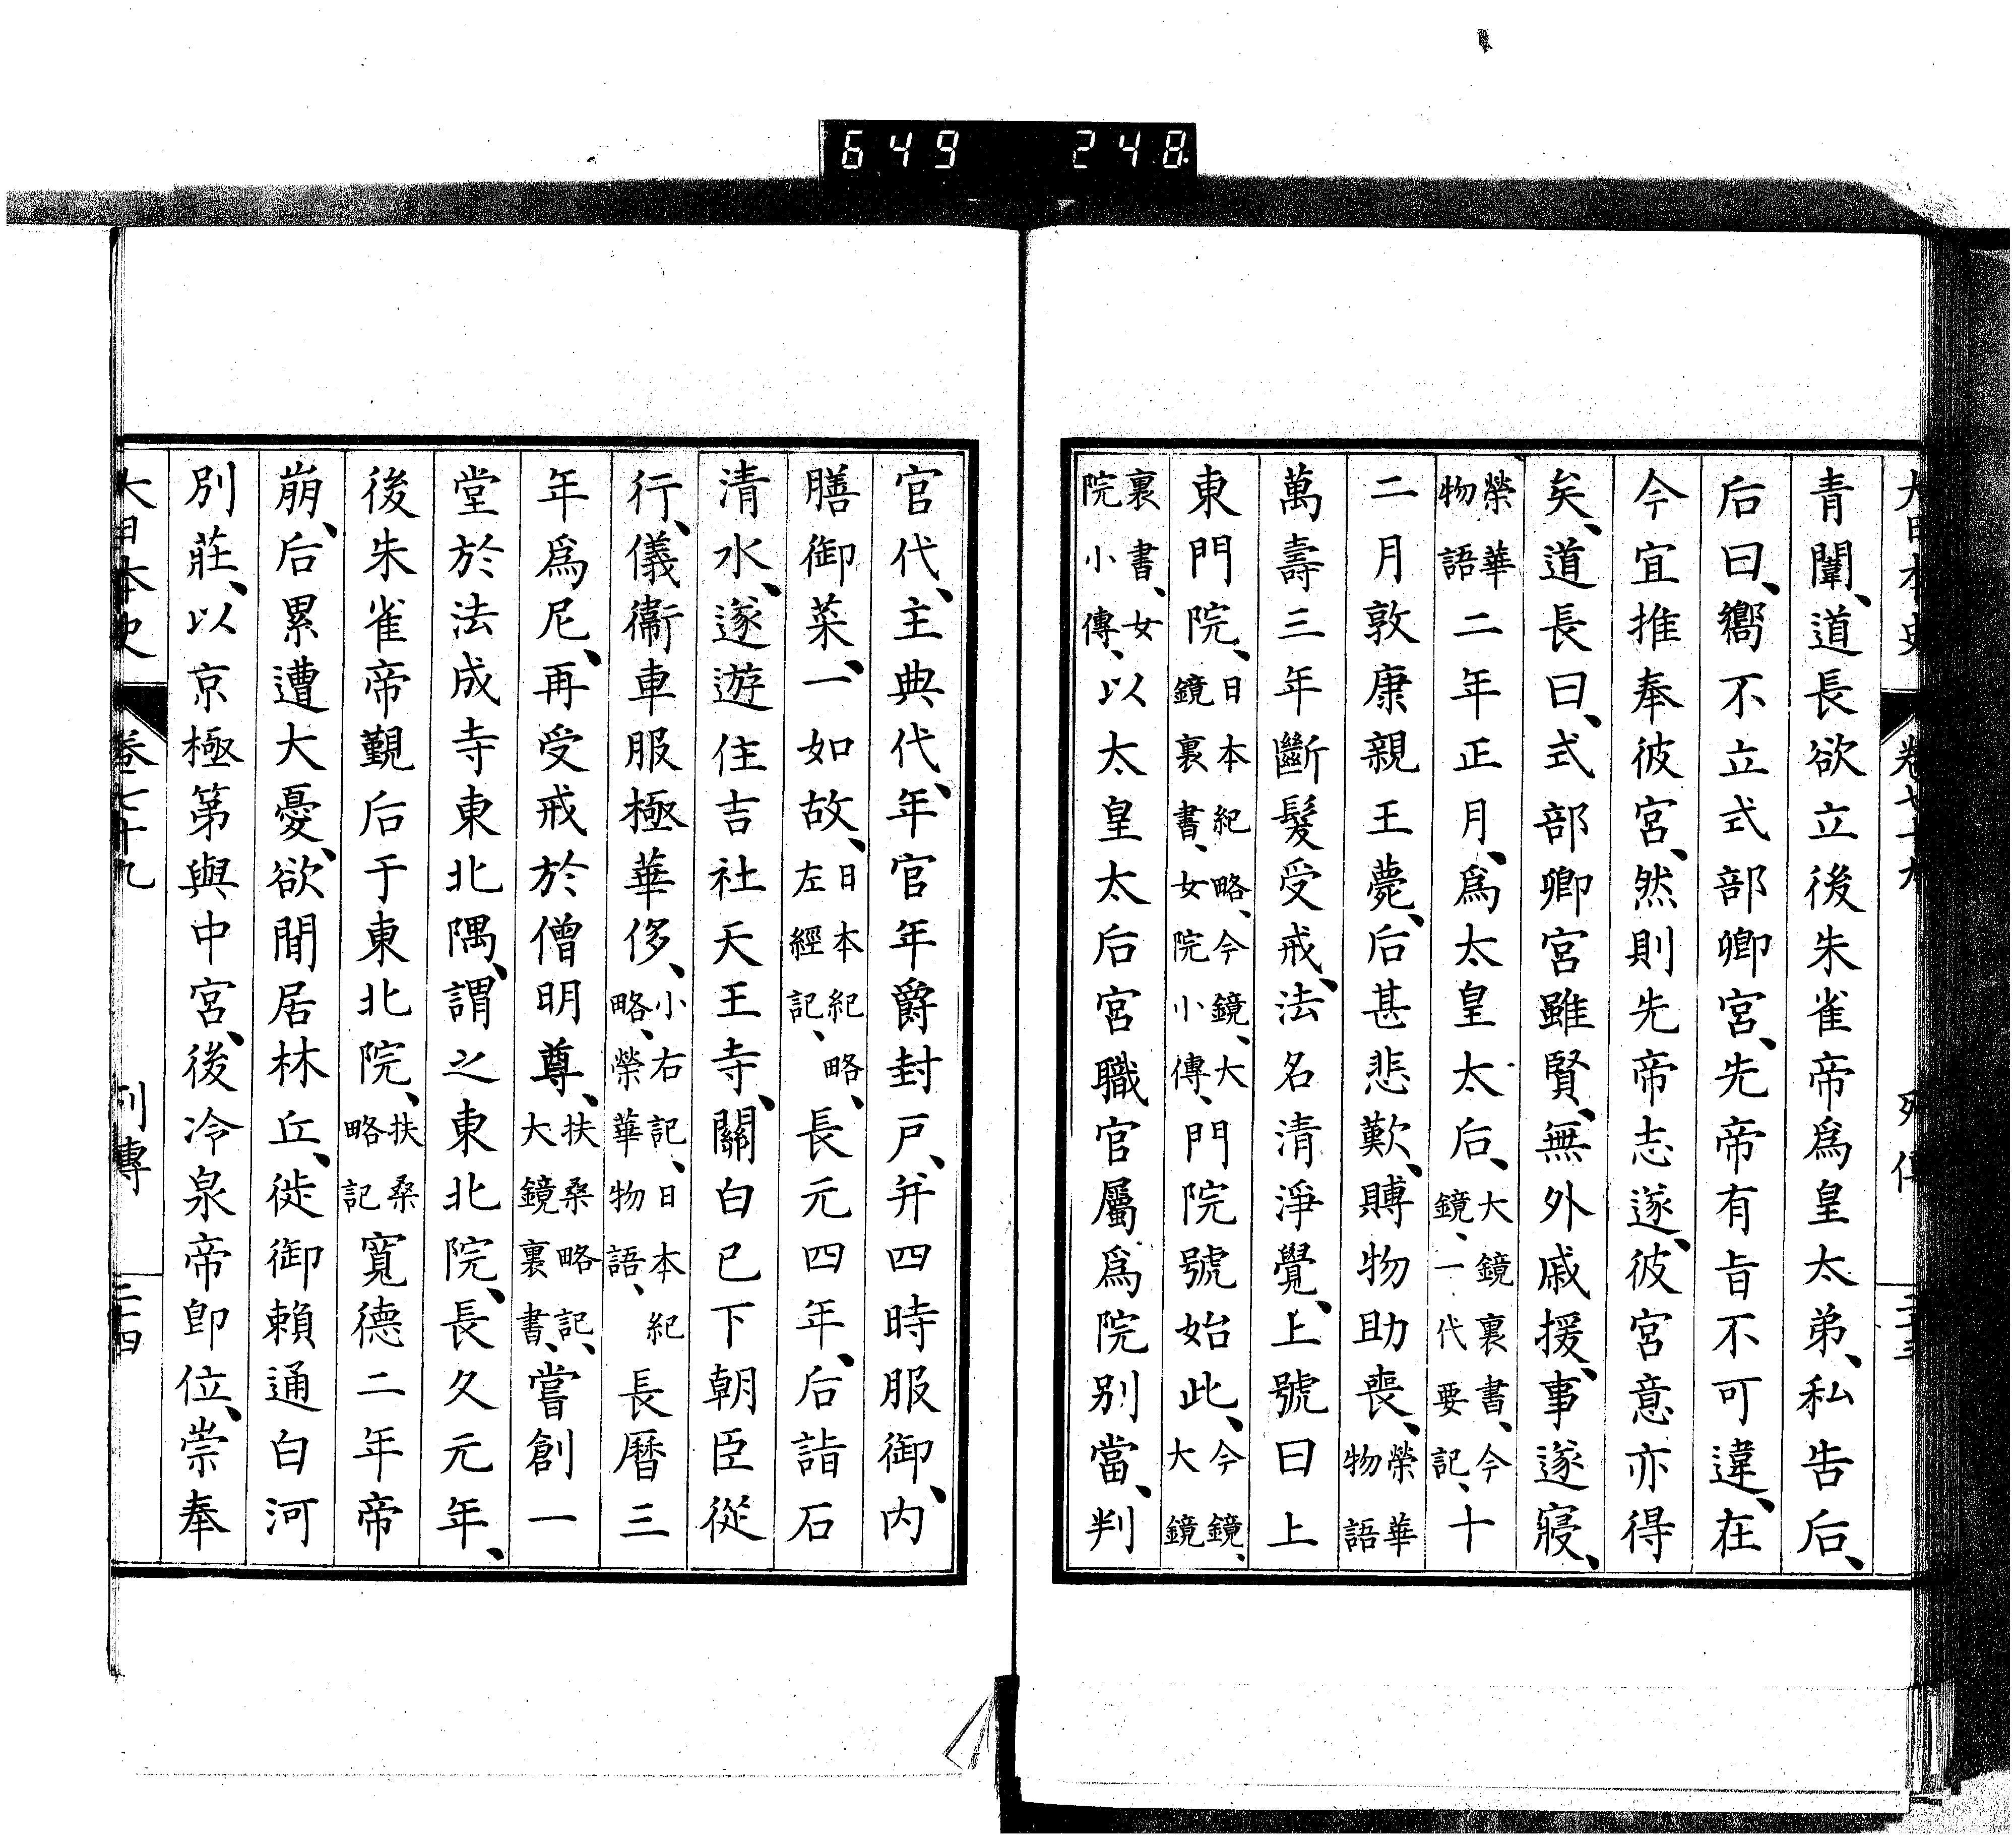 649 248
大日本史 卷七十九 列傳 二十三
青闈、道長欲立後朱雀帝爲皇太弟、私告后、
后曰、嚮不立式部卿宮、先帝有旨不可違、在
今宜推奉彼宮、然則先帝志遂、彼宮意亦得
矣、道長曰、式部卿宮雖賢、無外戚援、事遂寢、
榮華物語二年正月、爲太皇太后、大鏡裏書、今鏡、一代要記、十
二月敦康親王薨、后甚悲歎、賻物助喪、榮華物語
萬壽三年斷髮受戒、法名清淨覺、上號曰上
東門院、日本紀略、今鏡、大鏡裏書、女院小傳、門院號始此、今鏡、大鏡
裏書、女院小傳、以太皇太后宮職官屬爲院別當、判
官代、主典代、年官年爵封戸、并四時服御、内
膳御菜、一如故、日本紀略、左經記、長元四年、后詣石
清水、遂遊住吉社天王寺、關白已下朝臣從
行、儀衞車服極華侈、小右記、日本紀略、榮華物語、長曆三
年爲尼、再受戒於僧明尊、扶桑略記、大鏡裏書、嘗創一
堂於法成寺東北隅、謂之東北院、長久元年、
後朱雀帝覲后于東北院、扶桑略記寬德二年帝
崩、后累遭大憂、欲閒居林丘、徙御賴通白河
別莊、以京極第與中宮、後冷泉帝卽位、崇奉
大日本史 卷七十九 列傳 二十四